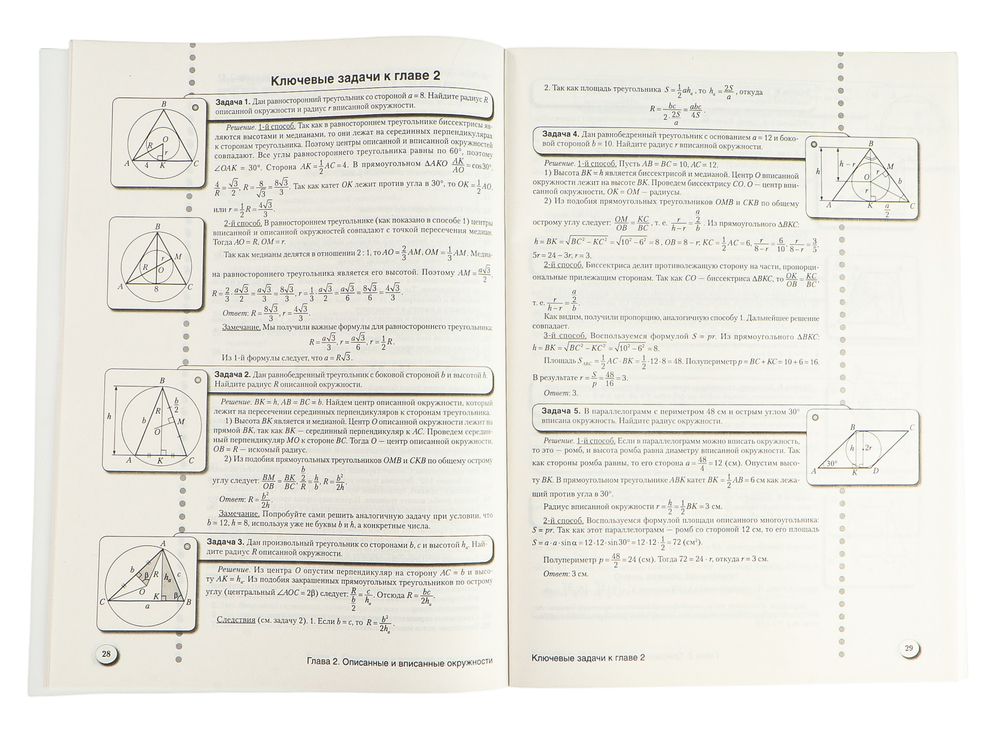 Ключевые задачи к главе 2
Задача 1. Дан равносторонний треугольник со стороной a = 8. Найдите радиус R
описанной окружности и радиус r вписанной окружности.
B
R
O
r
A
4
K
C
Решение. 1-й способ. Так как в равностороннем треугольнике биссектрисы яв-
ляются высотами и медианами, то они лежат на серединных перпендикулярах
к сторонам треугольника. Поэтому центры описанной и вписанной окружностей
совпадают. Все углы равностороннего треугольника равны по 60°, поэтому
∠OAK = 30°. Сторона AK = 1/2 AC = 4. В прямоугольном ΔAKO AK/AO = cos30°.
4/R = √3/2, R = 8/√3 = 8√3/3. Так как катет OK лежит против угла в 30°, то OK = 1/2 AO,
или r = 1/2 R = 4√3/3.
2-й способ. В равностороннем треугольнике (как показано в способе 1) центры
вписанной и описанной окружностей совпадают с точкой пересечения медиан.
Тогда AO = R, OM = r.
B
M
R
r
O
A
8
C
Так как медианы делятся в отношении 2 : 1, то AO = 2/3 AM, OM = 1/3 AM. Медиа-
на равностороннего треугольника является его высотой. Поэтому AM = a√3/2,
R = 2/3 · a√3/2 = a√3/3 = 8√3/3, r = 1/3 · a√3/2 = a√3/6 = 8√3/6 = 4√3/3.
Ответ: R = 8√3/3, r = 4√3/3.
Замечание. Мы получили важные формулы для равностороннего треугольника
R = a√3/3, r = a√3/6, r = 1/2 R.
Из 1-й формулы следует, что a = R√3.
Задача 2. Дан равнобедренный треугольник с боковой стороной b и высотой h.
Найдите радиус R описанной окружности.
B
b/2
R
h
b
M
O
A
K
C
Решение. BK = h, AB = BC = b. Найдем центр описанной окружности, который
лежит на пересечении серединных перпендикуляров к сторонам треугольника.
1) Высота BK является и медианой. Центр O описанной окружности лежит на
прямой BK, так как BK — серединный перпендикуляр к AC. Проведем середин-
ный перпендикуляр MO к стороне BC. Тогда O — центр описанной окружности,
OB = R — искомый радиус.
2) Из подобия прямоугольных треугольников OMB и CKB по общему острому
углу следует: BM/OB = BK/BC, (b/2)/R = h/b, R = b²/2h.
Ответ: R = b²/2h.
Замечание. Попробуйте сами решить аналогичную задачу при условии, что
b = 12, h = 8, используя уже не буквы b и h, а конкретные числа.
Задача 3. Дан произвольный треугольник со сторонами b, c и высотой hₐ. Най-
дите радиус R описанной окружности.
A
b
β
R
hₐ
c
O
K
β
C
a
B
Решение. Из центра O опустим перпендикуляр на сторону AC = b и высо-
ту AK = hₐ. Из подобия закрашенных прямоугольных треугольников по острому
углу (центральный ∠AOC = 2β) следует: R/(b/2) = c/hₐ. Отсюда R = bc/2hₐ.
Следствия (см. задачу 2). 1. Если b = c, то R = b²/2hₐ.
28
Глава 2. Описанные и вписанные окружности
2. Так как площадь треугольника S = 1/2 ahₐ, то hₐ = 2S/a, откуда
R = bc/(2 · 2S/a) = abc/4S.
Задача 4. Дан равнобедренный треугольник с основанием a = 12 и боко-
вой стороной b = 10. Найдите радиус r вписанной окружности.
B
h – r
h
M
O
r
b
r
A
K
a/2
C
Решение. 1-й способ. Пусть AB = BC = 10, AC = 12.
1) Высота BK = h является биссектрисой и медианой. Центр O вписанной
окружности лежит на высоте BK. Проведем биссектрису CO. O — центр впи-
санной окружности, OK = OM — радиусы.
2) Из подобия прямоугольных треугольников OMB и CKB по общему
острому углу следует: OM/OB = KC/BC, т. е. r/(h – r) = (a/2)/b. Из прямоугольного ΔBKC:
h = BK = √(BC² – KC²) = √(10² – 6²) = 8, OB = 8 – r, KC = 1/2 AC = 6, r/(8 – r) = 6/10, r/(8 – r) = 3/5,
5r = 24 – 3r, r = 3.
2-й способ. Биссектриса делит противолежащую сторону на части, пропорци-
ональные прилежащим сторонам. Так как CO — биссектриса ΔBKC, то OK/OB = KC/BC,
т. е. r/(h – r) = (a/2)/b.
Как видим, получили пропорцию, аналогичную способу 1. Дальнейшее решение
совпадает.
3-й способ. Воспользуемся формулой S = pr. Из прямоугольного ΔBKC:
h = BK = √(BC² – KC²) = √(10² – 6²) = 8.
Площадь S_ABC = 1/2 AC · BK = 1/2 · 12 · 8 = 48. Полупериметр p = BC + KC = 10 + 6 = 16.
В результате r = S/p = 48/16 = 3.
Ответ: 3.
Задача 5. В параллелограмм с периметром 48 см и острым углом 30°
вписана окружность. Найдите радиус окружности.
B
C
h
2r
30°
A
K
D
Решение. 1-й способ. Если в параллелограмм можно вписать окружность,
то это — ромб, и высота ромба равна диаметру вписанной окружности. Так
как стороны ромба равны, то его сторона a = 48/4 = 12 (см). Опустим высо-
ту BK. В прямоугольном треугольнике ABK катет BK = 1/2 AB = 6 см как лежа-
щий против угла в 30°.
Радиус вписанной окружности r = h/2 = 1/2 BK = 3 см.
2-й способ. Воспользуемся формулой площади описанного многоугольника:
S = pr. Так как этот параллелограмм — ромб со стороной 12 см, то его площадь
S = a · a · sin α = 12 · 12 · sin30° = 12 · 12 · 1/2 = 72 (см²).
Полупериметр p = 48/2 = 24 (см). Тогда 72 = 24 · r, откуда r = 3 см.
Ответ: 3 см.
Ключевые задачи к главе 2
29